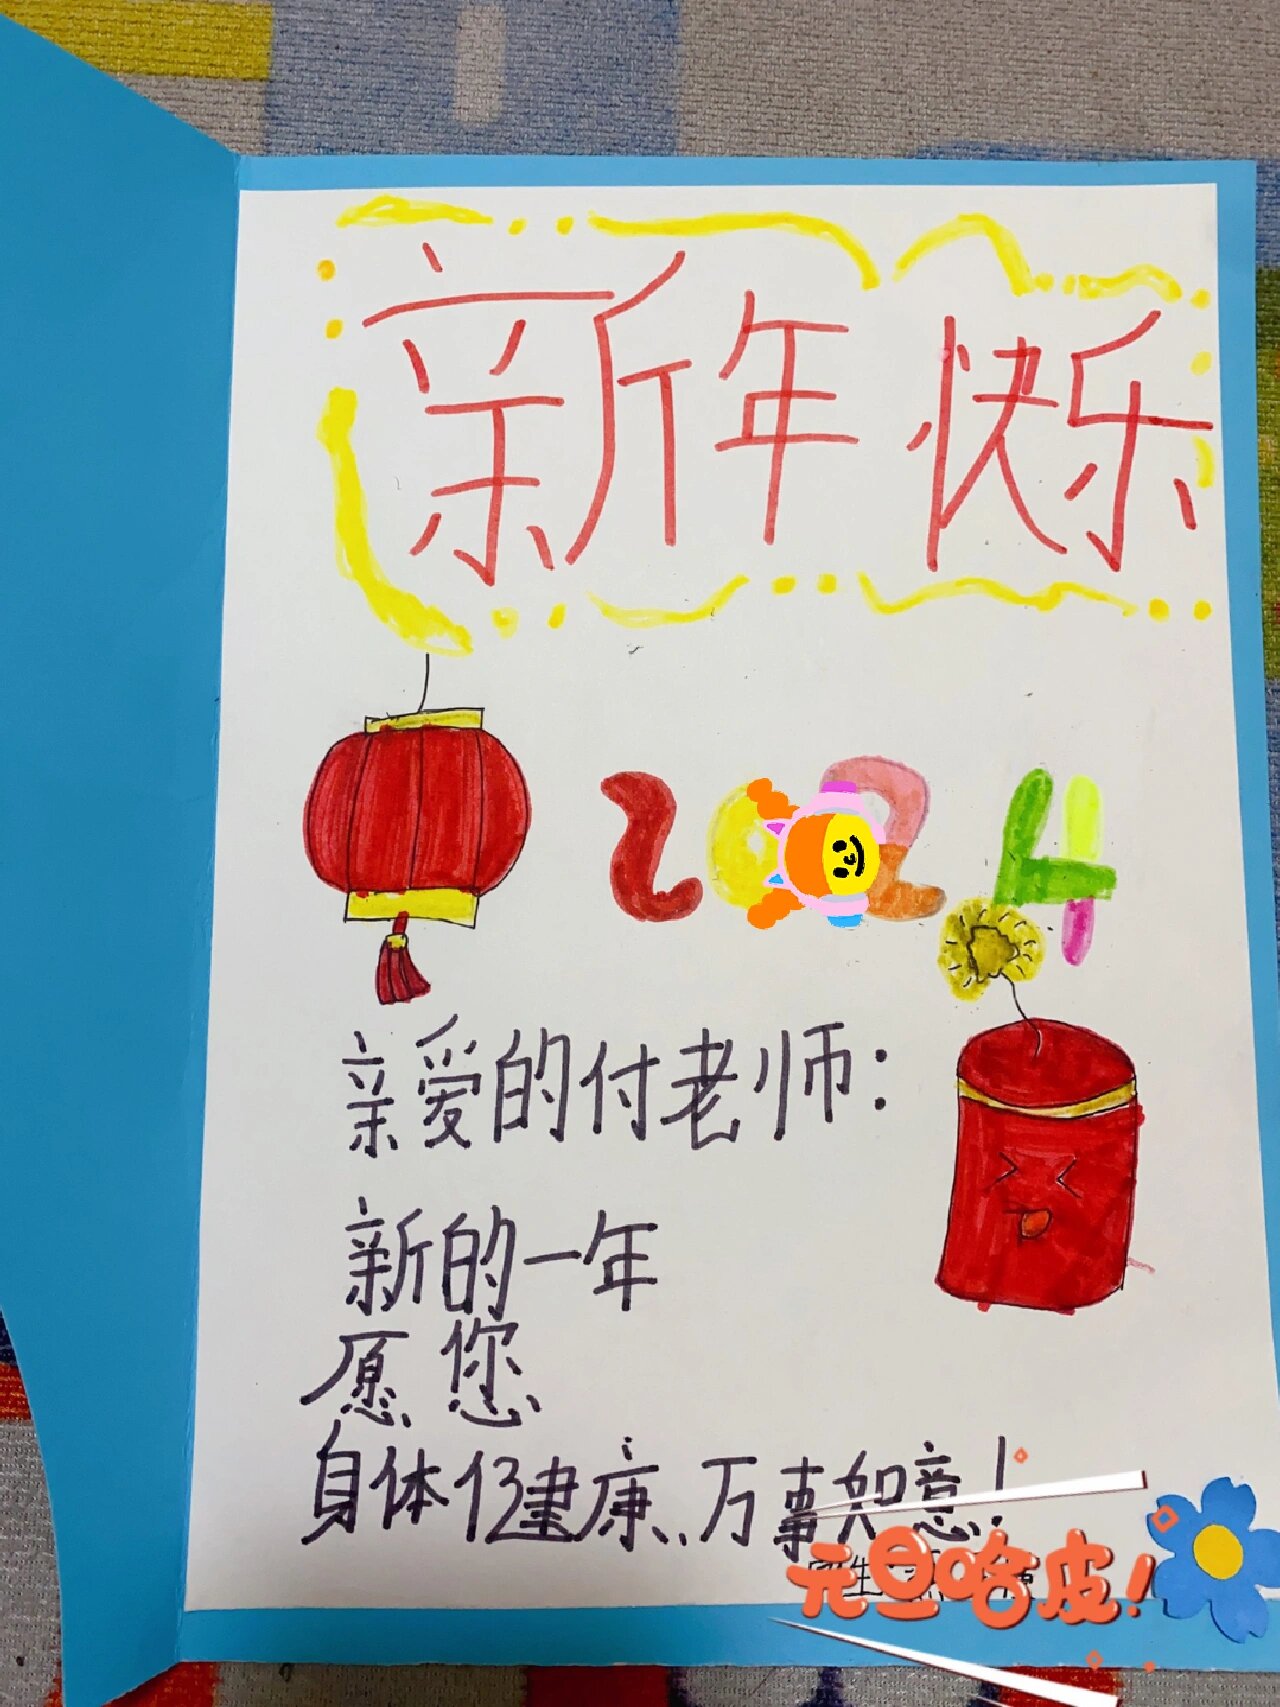 新年快乐
2024
亲爱的付老师：
新的一年
愿您
身体健康、万事如意！
元旦咯皮！